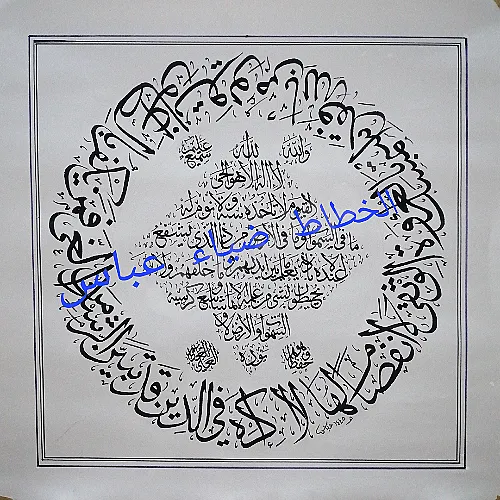 الله
والله سميع عليم
لا اله الا هو الحي
القيوم لا تأخذه سنة ولا نوم له
ما في السموات وما في الارض من ذا الذي يشفع
يعلم ما بين ايديهم وما خلفهم ولا
يحيطون بشيء من علمه الا بما شاء وسع كرسيه
السموات والارض ولا
يؤده حفظهما وهو العلي العظيم
لا اكراه في الدين قد تبين الرشد من الغي فمن يكفر بالطاغوت ويؤمن بالله فقد استمسك بالعروة الوثقى لا انفصام لها
الخطاط ضياء عباس